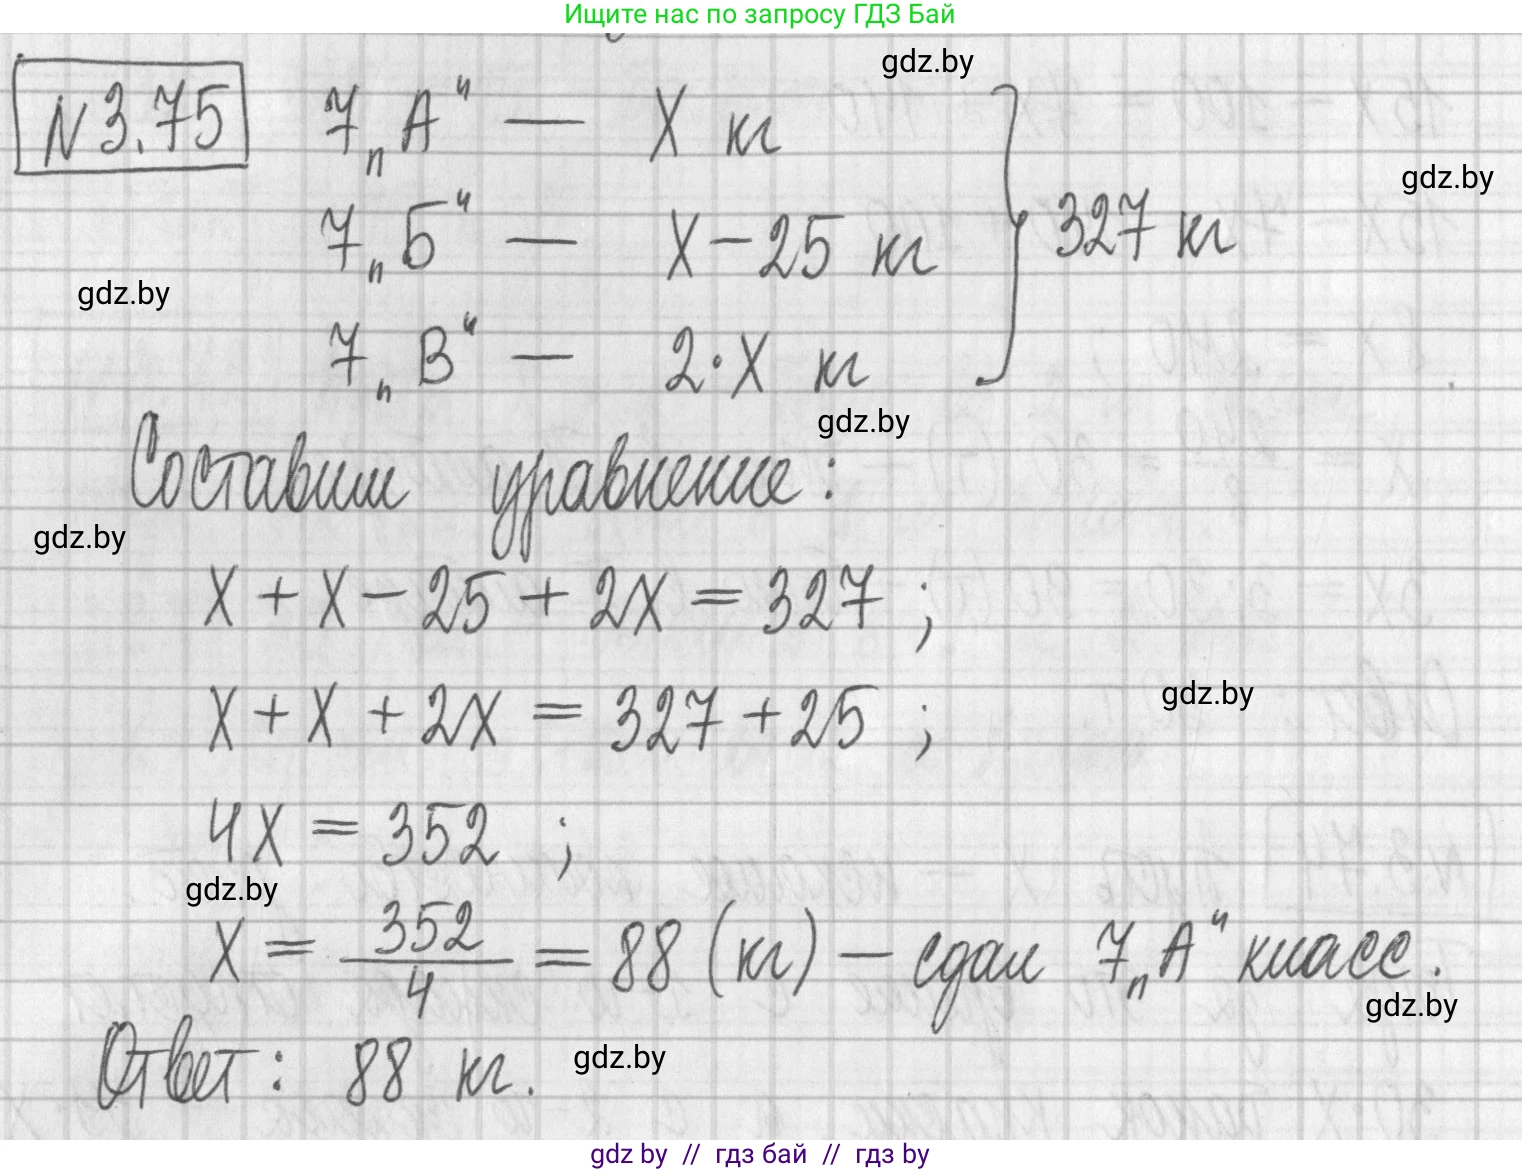 Ищите нас по запросу ГДЗ Бай
gdz.by
№3.75 7„А“ — x кг
gdz.by
7„Б“ — x – 25 кг 327 кг
gdz.by
7„В“ — 2·x кг
gdz.by
Составим уравнение:
gdz.by
x + x – 25 + 2x = 327 ;
gdz.by
x + x + 2x = 327 + 25 ;
4x = 352 ;
gdz.by
x = 352/4 = 88 (кг) – сдал 7„А“ класс.
gdz.by
Ответ: 88 кг.
gdz.by
gdz.by // гдз бай // гдз by